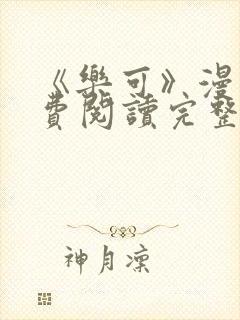 《樂可》漫
費閱讀完整
神月凜